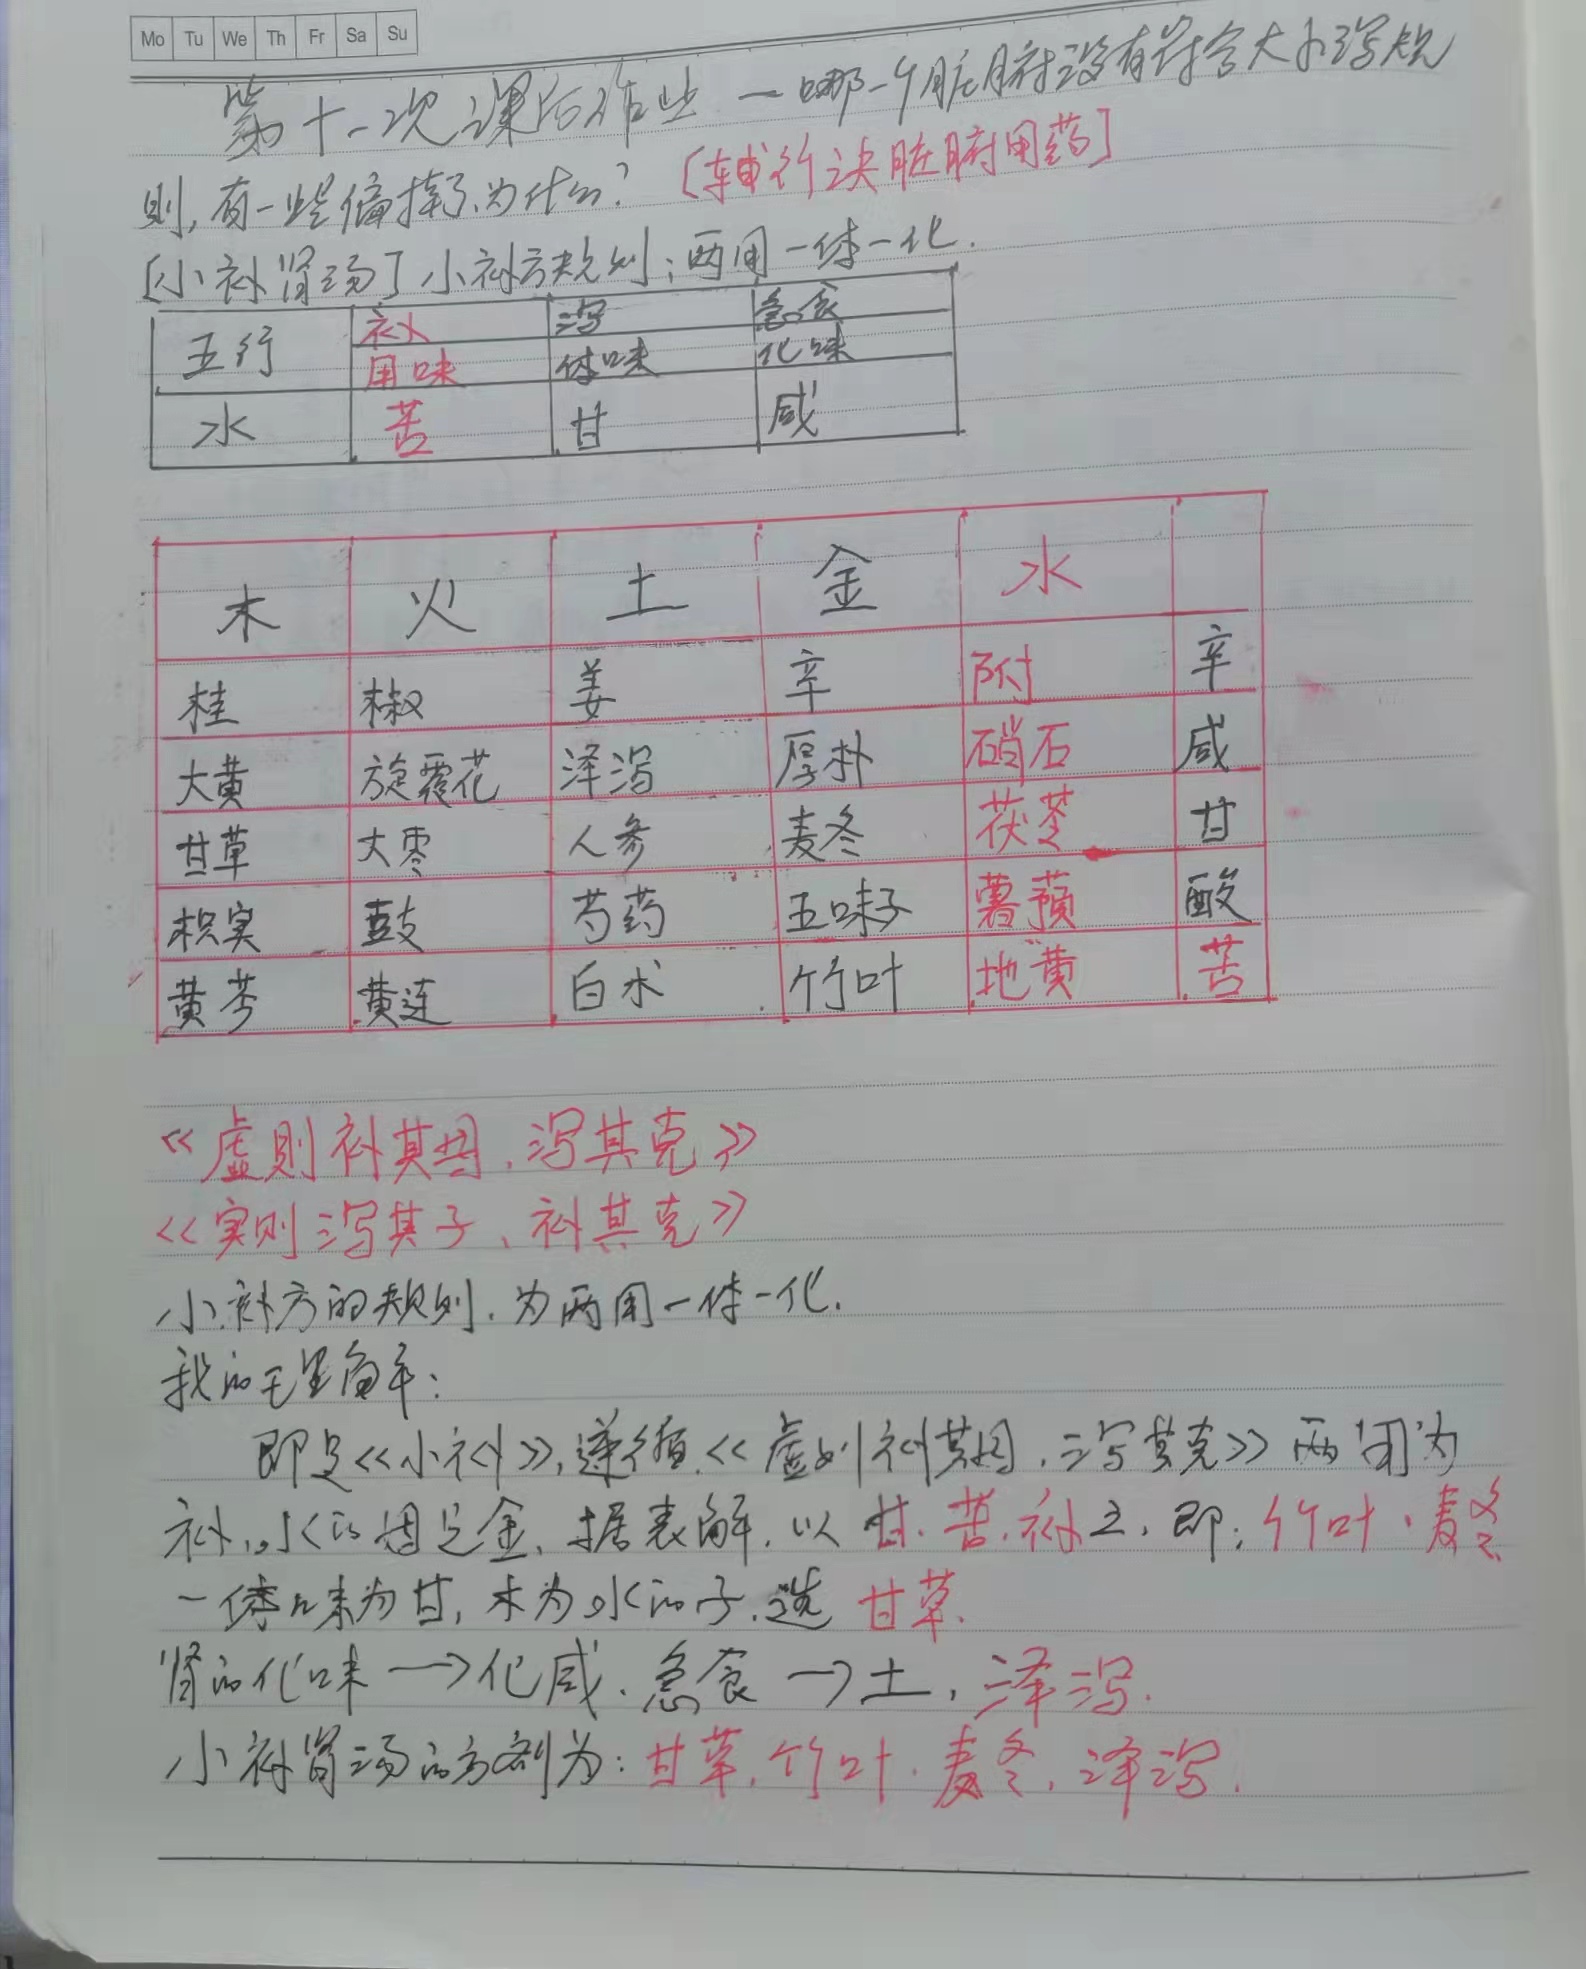 Mo Tu We Th Fr Sa Su
第十一次课后作业一哪一个脏腑没有符合大小泻规
则,有一些偏掉了,为什么? [辅行决脏腑用药]
[小补肾汤]小补方规则:两用一体一化.
五行 补 泻 急食
用味 体味 化味
水 苦 甘 咸
木 火 土 金 水
桂 椒 姜 辛 附 辛
大黄 旋覆花 泽泻 厚朴 硝石 咸
甘草 大枣 人参 麦冬 茯苓 甘
枳实 豉 芍药 五味子 薯蓣 酸
黄芩 黄连 白术 竹叶 地黄 苦
《虚则补其因,泻其克》
《实则泻其子、补其克》
小补方的规则.为两用一体一化.
我的理解:
即是《小补》,遵循《虚则补其因,泻其克》两"用"为
补,水的因是金,据表解,以甘.苦.补之,即:竹叶.麦冬
一体味为甘,木为水的子.选 甘草.
肾的化味→化咸、急食→土,泽泻.
小补肾汤的方剂为:甘草,竹叶.麦冬,泽泻.